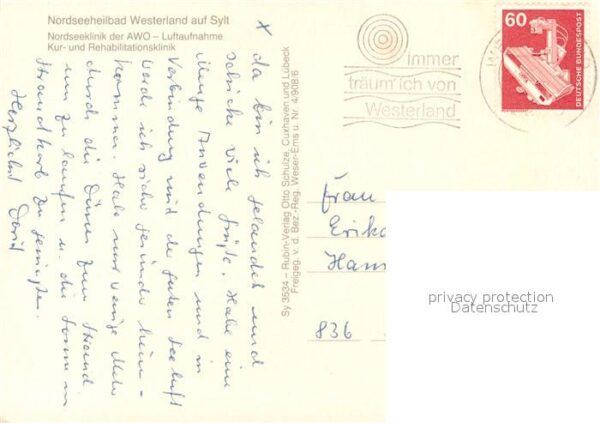 Nordseeheilbad Westerland auf Sylt
Nordseeklinik der AWO – Luftaufnahme
Kur- und Rehabilitationsklinik
x da bin ich gelandet und
schicke viele Grüße. Habe eine
Menge Anwendungen und in
Verbindung mit der guten Seeluft
werde ich sicher gesünder heim-
kommen. Habe nur wenige Meter
durch die Dünen zum Strand
um zu laufen u. die Sonne im
Strandkorb zu genießen.
Herzlichst David
Sy 3534 – Rubin-Verlag Otto Schulze, Cuxhaven und Lübeck
Freigeg. v. d. Bez.-Reg. Weser-Ems u. Nr. 4/908/6
immer
träum' ich von
Westerland
60
DEUTSCHE BUNDESPOST
Frau
Erika
Hann
836
privacy protection
Datenschutz